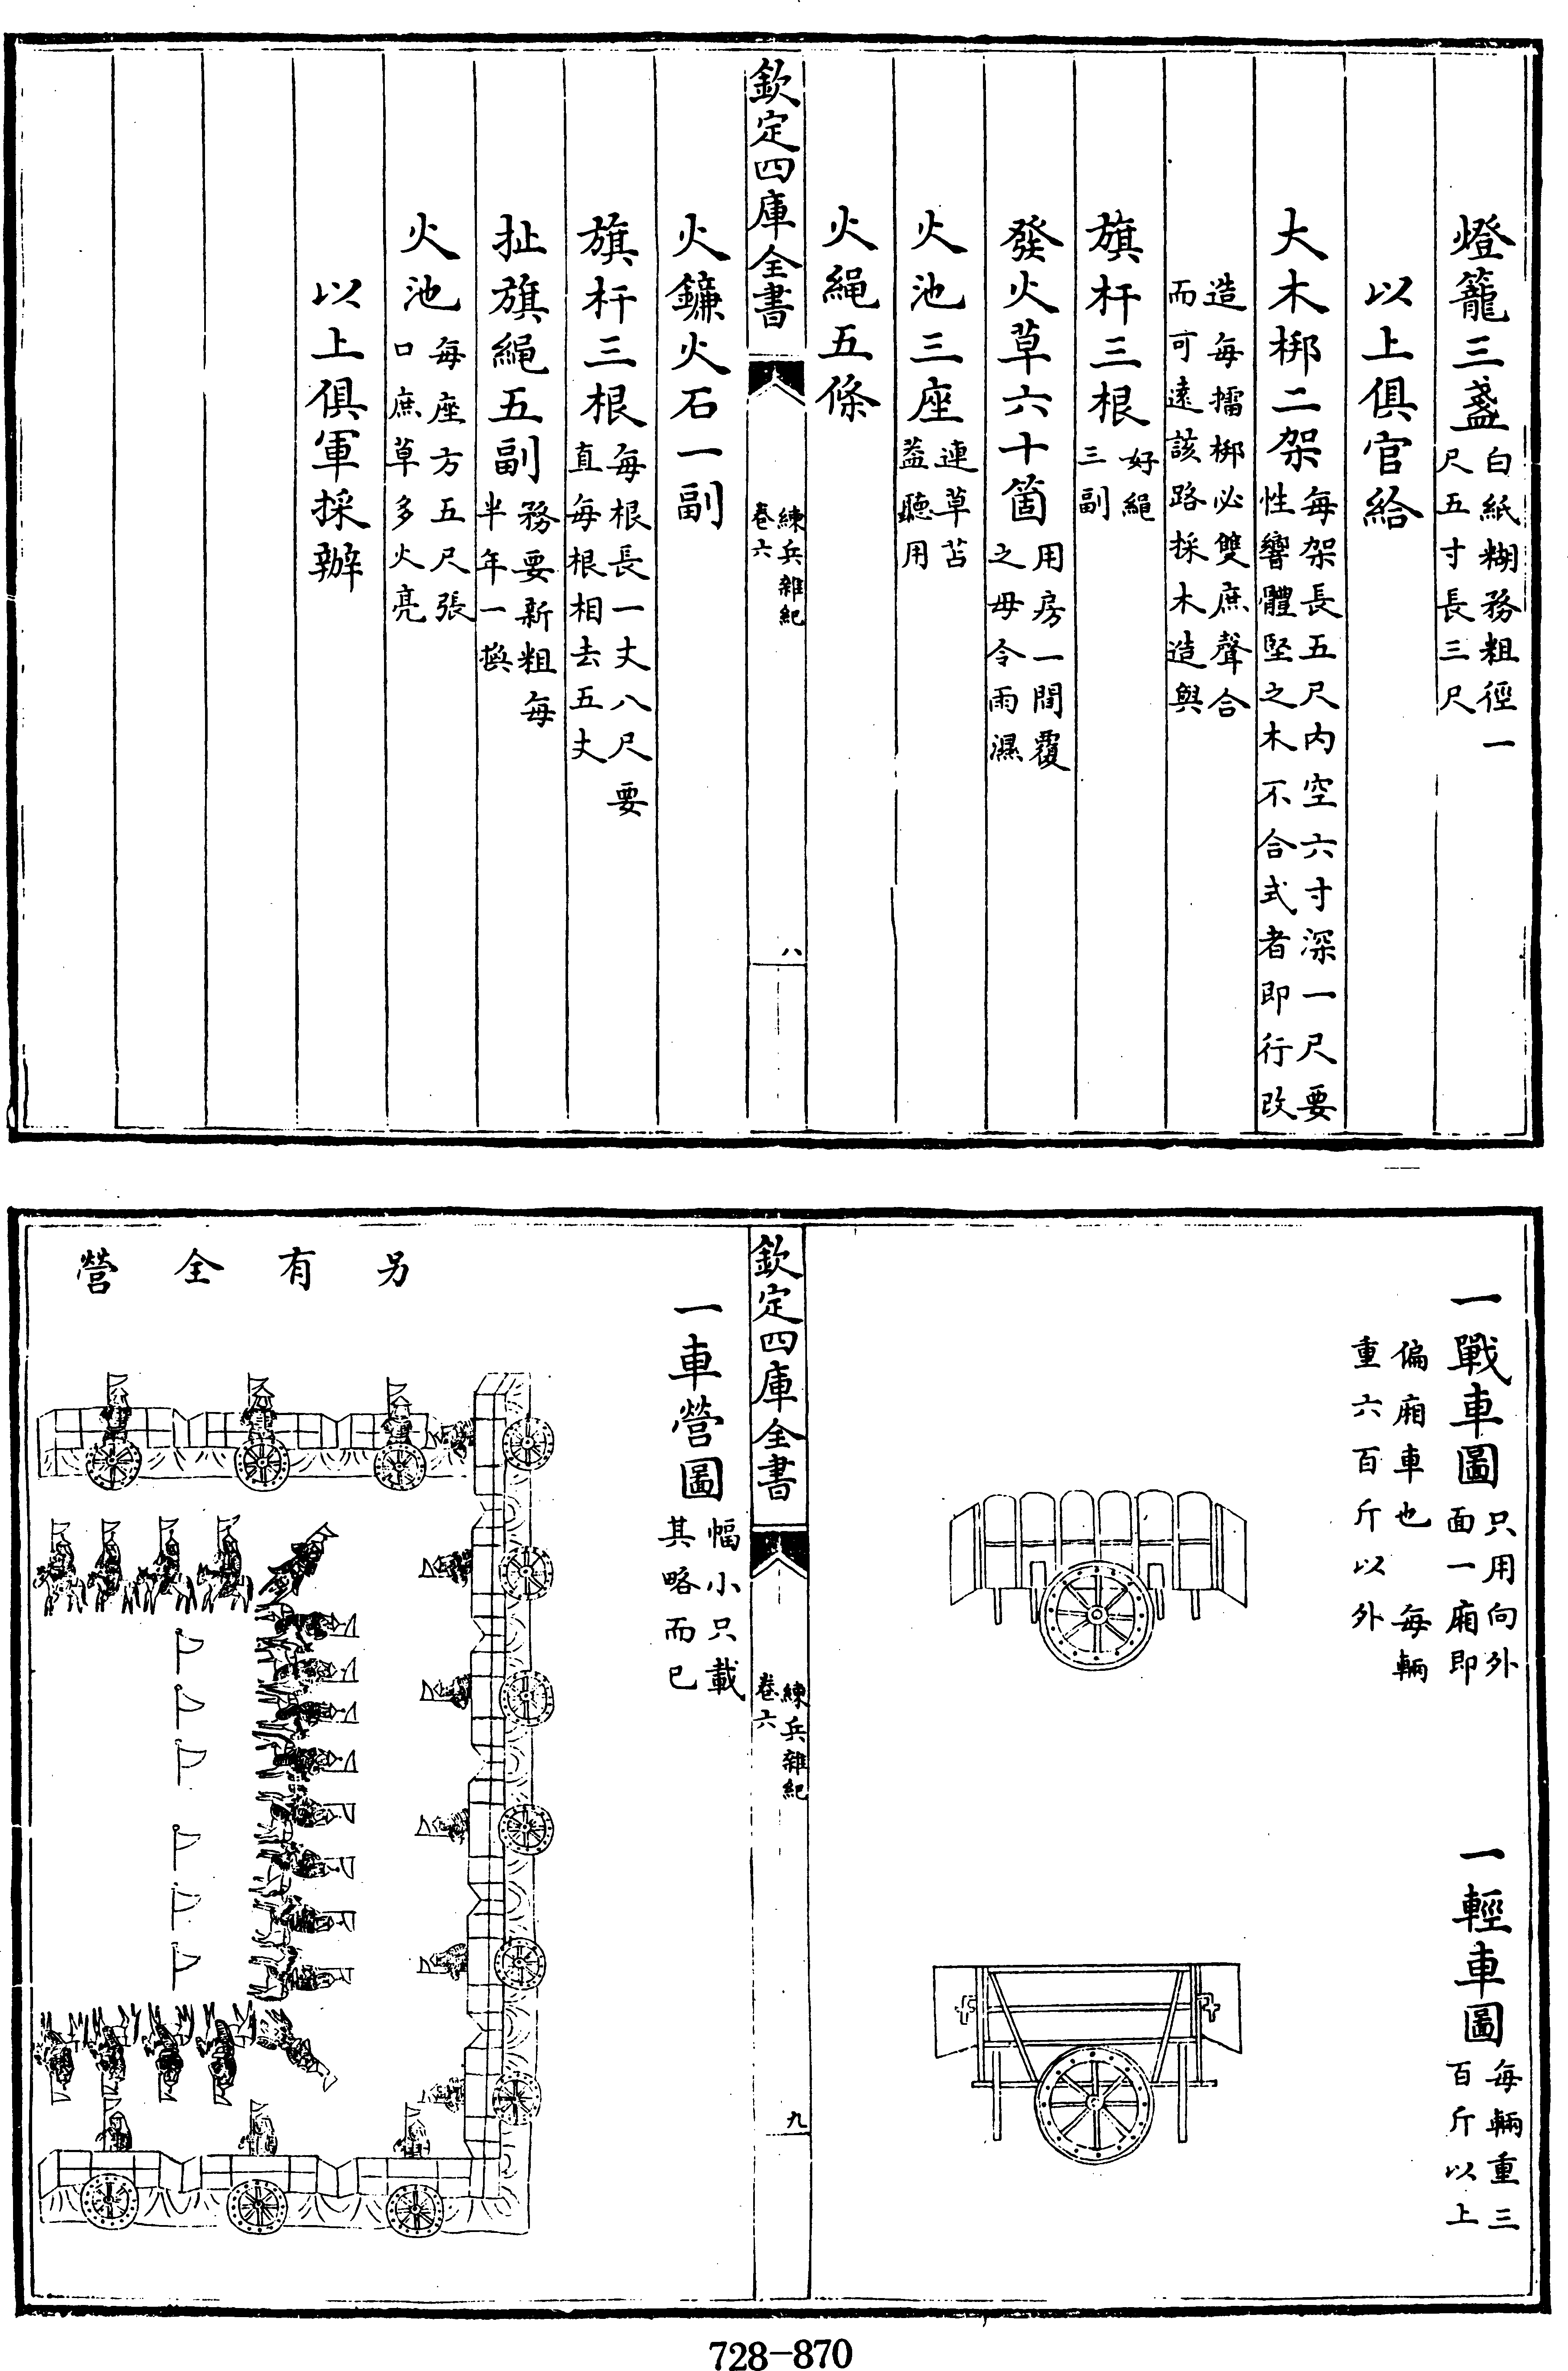 燈籠三盞白紙糊務粗徑一
尺五寸長三尺
以上俱官給
大木梆二架每架長五尺內空六寸深一尺要
性響體堅之木不合式者即行改
造每擂梆必雙庶聲合
而可遠該路採木造與
旗杆三根好繩
三副
發火草六十箇用房一間覆
之毋令雨濕
火池三座連草苫
蓋聽用
火繩五條
欽定四庫全書
練兵雜紀
卷六
八
火鐮火石一副
旗杆三根每根長一丈八尺要
直每根相去五丈
扯旗繩五副務要新粗每
半年一換
火池每座方五尺張
口庶草多火亮
以上俱軍採辦
一戰車圖只用向外
面一廂即
偏廂車也每輛
重六百斤以外
一輕車圖每輛重三
百斤以上
欽定四庫全書
練兵雜紀
卷六
九
一車營圖幅小只載
其略而已
另有全營
728-870